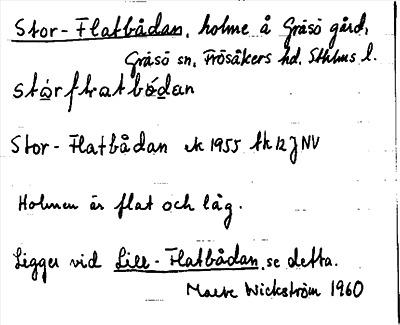 Stor-Flatbådan, holme å Gräsö gård,
Gräsö sn, Frösåkers hd. Sthlms l.
Stor-Flatbådan ek 1955 bk 12 J NV
Holmen är flat och låg.
Ligger vid Lill-Flatbådan, se detta.
Wickström 1960